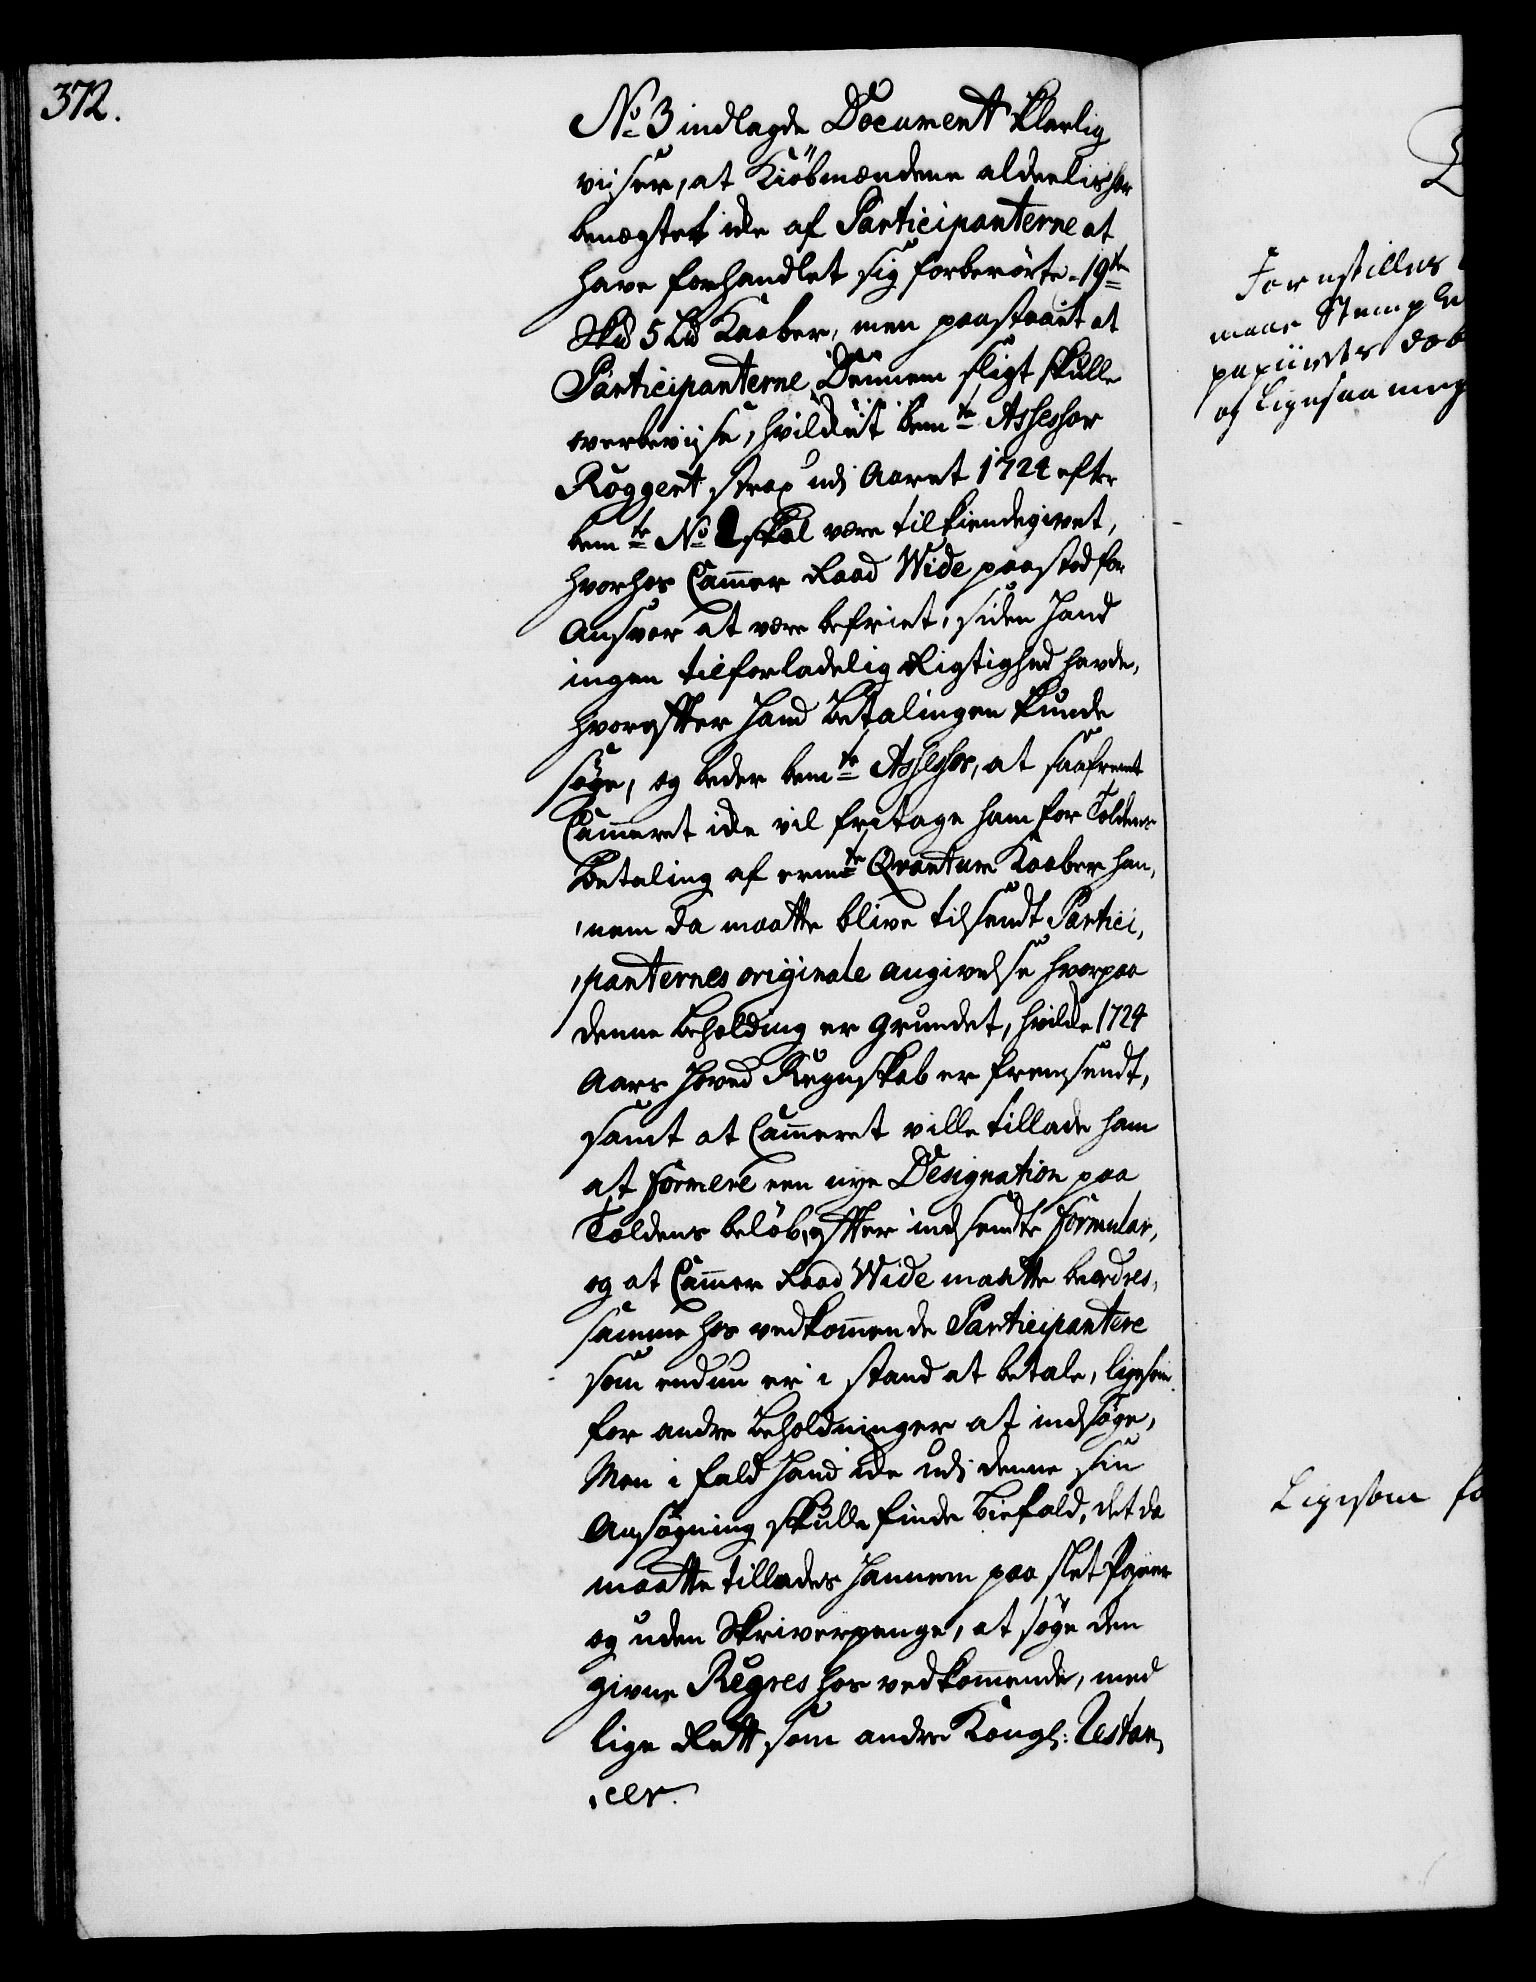 372.
No 3 indlagde Document klarlig
viiser, at Kiöbmændene alderlis har
benægtet ide af Participanterne at
have forhandlet sig forberörte 19 te
Skd 5 Ld Kaaber, men paastaaet at
Participanterne Dennem sligt skulle
overbeviise, hvilcket bem te Assessor
Röggert strax udi Aaret 1724 efter
bem te No 2 skal være tilkiendegivet,
hvorhos Cammer Raad Wide paastod for
Ansvar at være befriet, siden Hand
ingen tilforladelig Rigtighed havde,
hvorefter Hand Betalingen kunde
söge, og beder bem te Assessor, at saafremt
Cammeret icke vil fritage ham for Toldens
Betaling af erm te Qvantum Kaaber han,
,nem da maatte blive tilsendt Partici,
,panternes originale angivelse hvorpaa
denne beholding er grundet, hvilcke 1724
Aars Hoved Regnskab er fremsendt,
samt at Cammeret ville tillade ham
at formere een nye Designation paa
Toldens belöb, efter indsendte formular,
og at Cammer Raad Wide maatte beordres,
samme hos vedkommende Participantere
som endnu er i stand at betale, ligesom
for andre beholdninger at indsöge,
Men i fald Hand icke udi denne sin
Ansögning skulle finde biefald, det da
maatte tillades Hannem paa slet Papiir
og uden Skriverpenge, at söge den
givne Regres hos vedkommende, med
lige Rett som andre Kongl: Restan,
,cer.
Forestilles
maae Stemplet
papiirets
og ligesaa meg
Ligesom fo